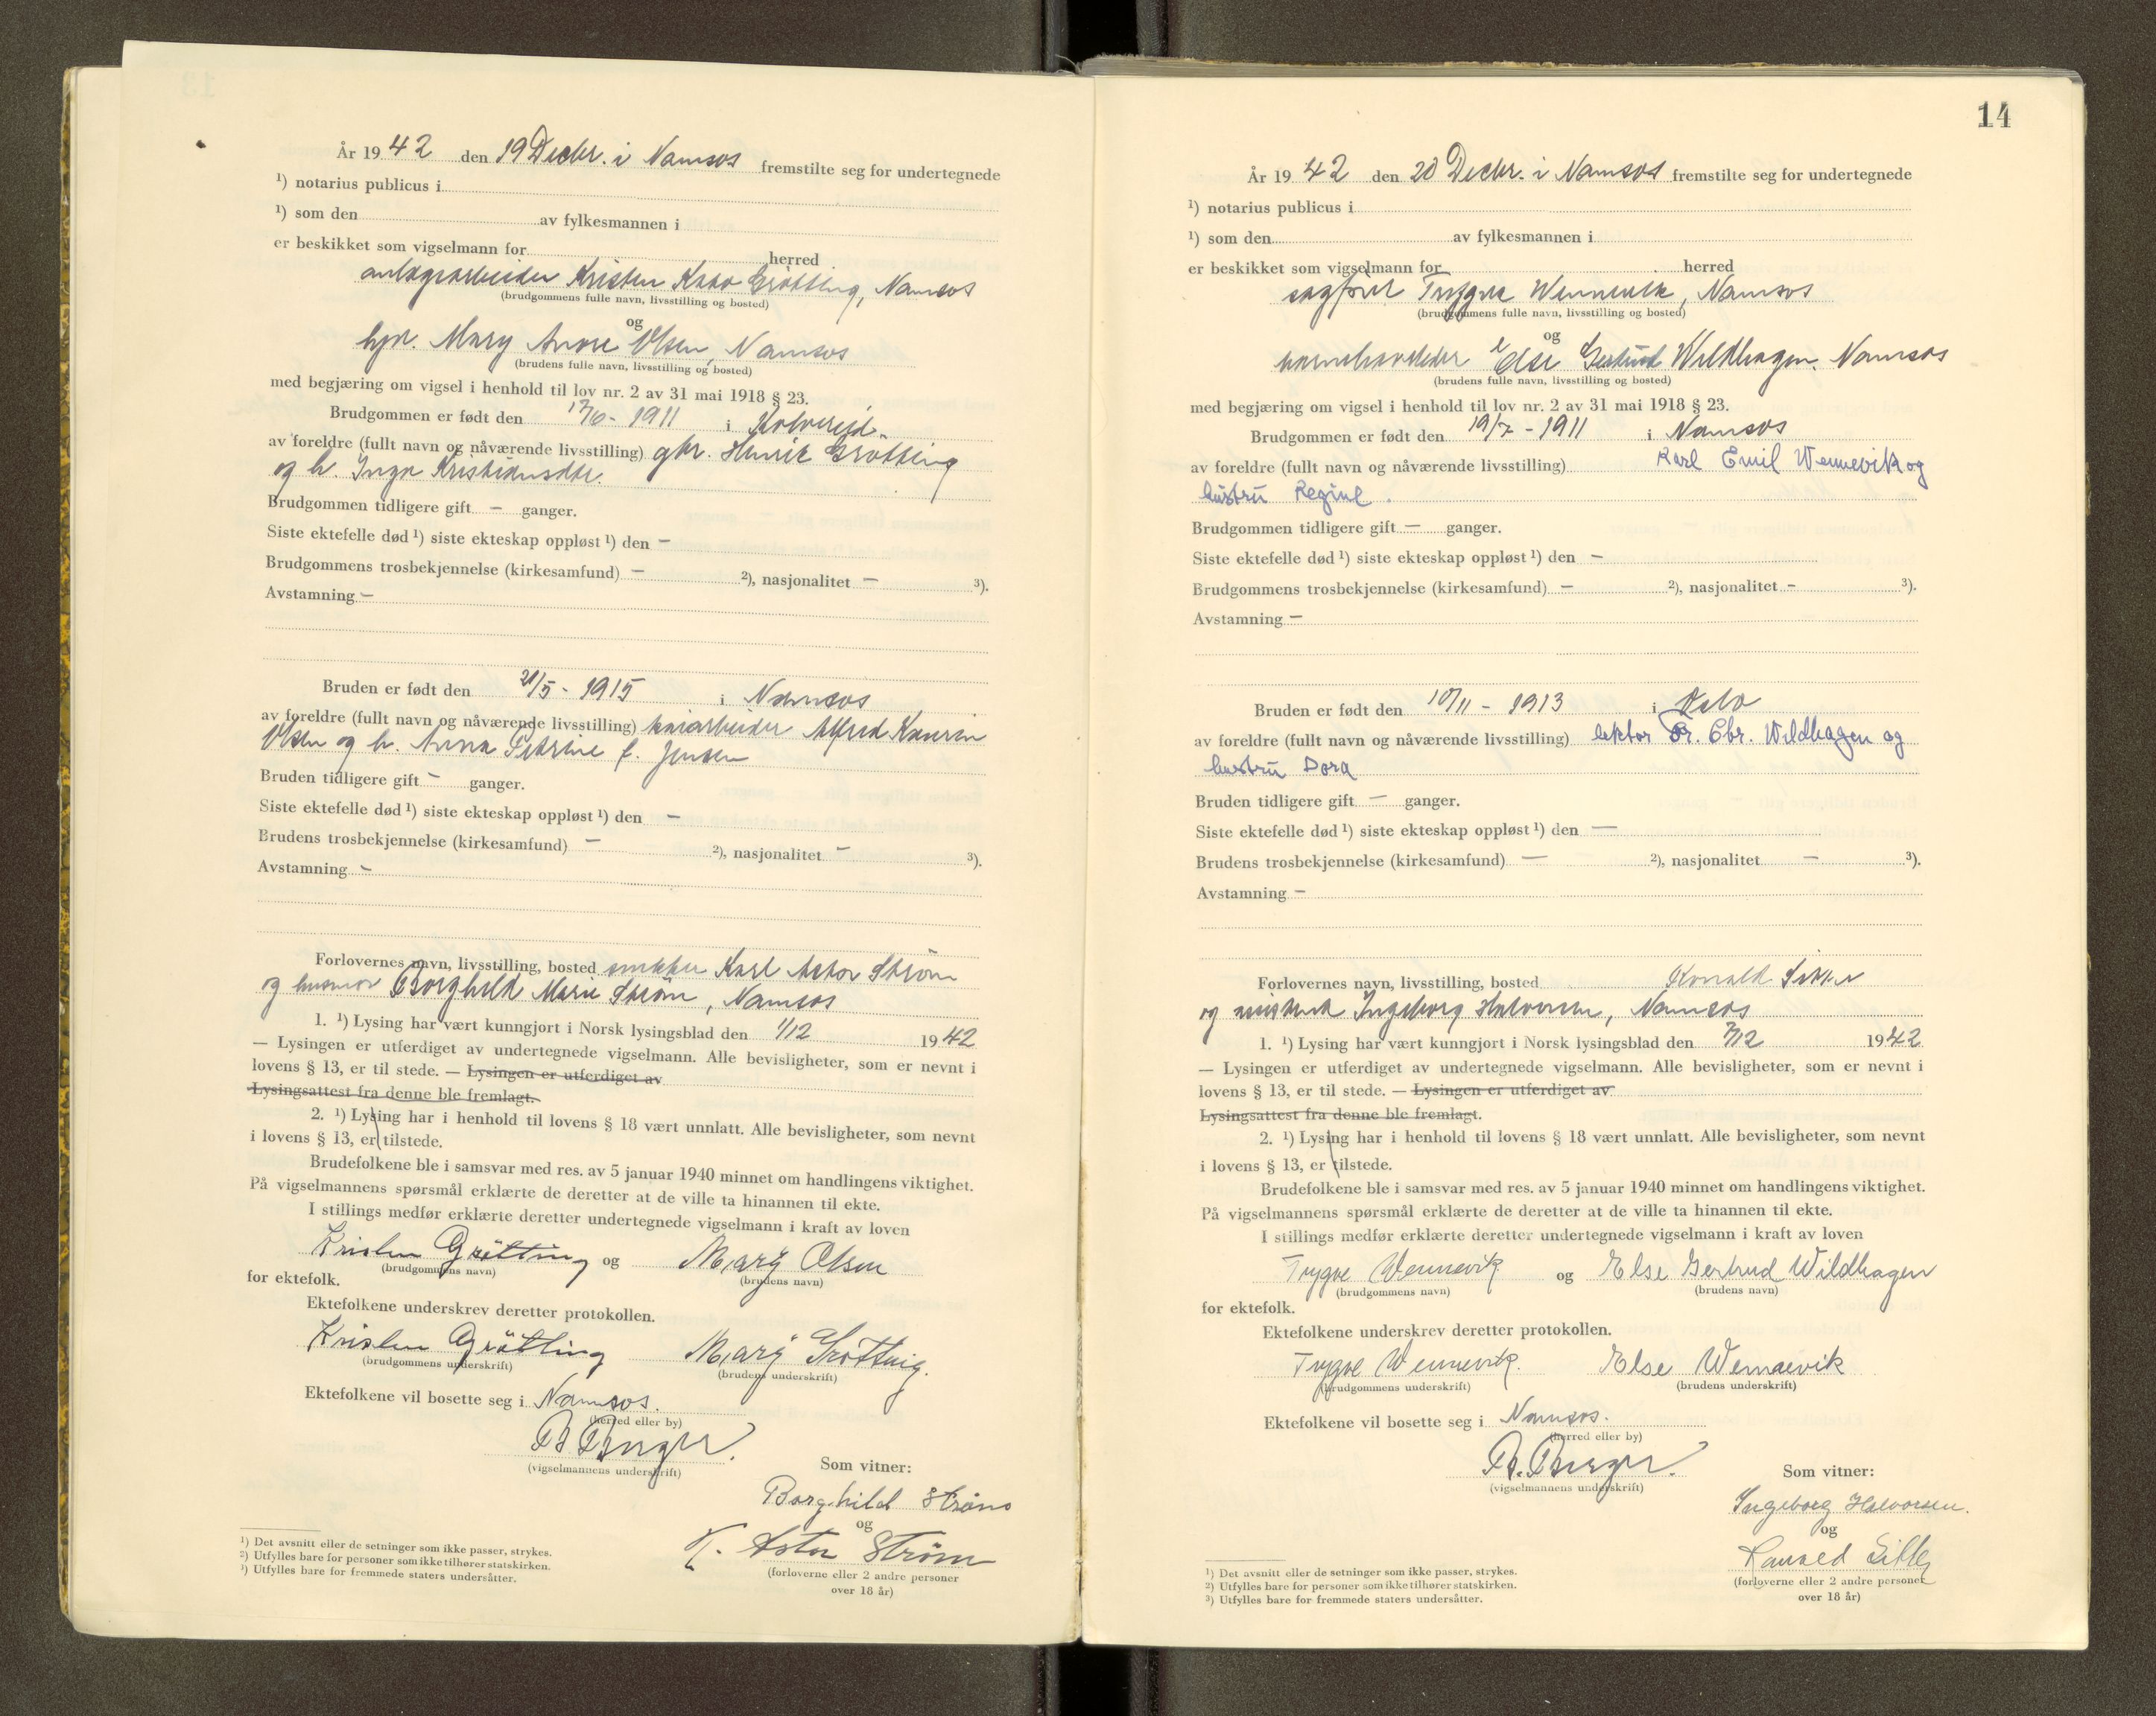 År 1942 den 19 Decbr. i Namsos fremstilte seg for undertegnede
¹) notarius publicus i
¹) som den av fylkesmannen i
er beskikket som vigselmann for herred
anlegsarbeider Kristen Grøtting, Namsos
(brudgommens fulle navn, livsstilling og bosted)
og
Mary Olsen, Namsos
(brudens fulle navn, livsstilling og bosted)
med begjæring om vigsel i henhold til lov nr. 2 av 31 mai 1918 § 23.
Brudgommen er født den 17/6 - 1911 i Kolvereid.
av foreldre (fullt navn og nåværende livsstilling) gbr. Henrik Grøtting
og h. Inga Kristiansdtr.
Brudgommen tidligere gift - ganger.
Siste ektefelle død ¹) siste ekteskap oppløst ¹) den -
Brudgommens trosbekjennelse (kirkesamfund) - ²), nasjonalitet - ³).
Avstamning -
Bruden er født den 21/5 - 1915 i Namsos
av foreldre (fullt navn og nåværende livsstilling) kaiarbeider Alfred
Olsen og h. Anna Petrine f. Jensen
Bruden tidligere gift - ganger.
Siste ektefelle død ¹) siste ekteskap oppløst ¹) den -
Brudens trosbekjennelse (kirkesamfund) - ²), nasjonalitet - ³).
Avstamning -
Forlovernes navn, livsstilling, bosted snekker Karl Astor Strøm
og husmor Borghild Marie Strøm, Namsos
1. ¹) Lysing har vært kunngjort i Norsk lysingsblad den 1/12 1942
— Lysingen er utferdiget av undertegnede vigselmann. Alle bevisligheter, som er nevnt i
lovens § 13, er til stede. — Lysingen er utferdiget av
Lysingsattest fra denne ble fremlagt.
2. ¹) Lysing har i henhold til lovens § 18 vært unnlatt. Alle bevisligheter, som nevnt
i lovens § 13, er tilstede.
Brudefolkene ble i samsvar med res. av 5 januar 1940 minnet om handlingens viktighet.
På vigselmannens spørsmål erklærte de deretter at de ville ta hinannen til ekte.
I stillings medfør erklærte deretter undertegnede vigselmann i kraft av loven
Kristen Grøtting og Mary Olsen
(brudgommens navn) (brudens navn)
for ektefolk.
Ektefolkene underskrev deretter protokollen.
Kristen Grøtting Mary Grøtting.
(brudgommens underskrift) (brudens underskrift)
Ektefolkene vil bosette seg i Namsos.
(herred eller by)
B. Berger.
(vigselmannens underskrift)
Som vitner:
Borghild Strøm
og
K. Astor Strøm
(forloverne eller 2 andre personer
over 18 år)
¹) Det avsnitt eller de setninger som ikke passer, strykes.
²) Utfylles bare for personer som ikke tilhører statskirken.
³) Utfylles bare for fremmede staters undersåtter.
14
År 1942 den 20 Decbr. i Namsos fremstilte seg for undertegnede
¹) notarius publicus i
¹) som den av fylkesmannen i
er beskikket som vigselmann for herred
sagfører Trygve Wennevik, Namsos
(brudgommens fulle navn, livsstilling og bosted)
og
Else Gertrud Wildhagen. Namsos
(brudens fulle navn, livsstilling og bosted)
med begjæring om vigsel i henhold til lov nr. 2 av 31 mai 1918 § 23.
Brudgommen er født den 19/7 - 1911 i Namsos
av foreldre (fullt navn og nåværende livsstilling) Karl Emil Wennevik og
hustru Regine.
Brudgommen tidligere gift — ganger.
Siste ektefelle død ¹) siste ekteskap oppløst ¹) den —
Brudgommens trosbekjennelse (kirkesamfund) — ²), nasjonalitet - ³).
Avstamning —
Bruden er født den 10/11 - 1913 i Oslo
av foreldre (fullt navn og nåværende livsstilling) lektor Dr. Chr. Wildhagen og
hustru Dora
Bruden tidligere gift — ganger.
Siste ektefelle død ¹) siste ekteskap oppløst ¹) den —
Brudens trosbekjennelse (kirkesamfund) — ²), nasjonalitet — ³).
Avstamning —
Forlovernes navn, livsstilling, bosted
og Ingeborg Halvorsen, Namsos
1. ¹) Lysing har vært kunngjort i Norsk lysingsblad den 7/12 1942
— Lysingen er utferdiget av undertegnede vigselmann. Alle bevisligheter, som er nevnt i
lovens § 13, er til stede. — Lysingen er utferdiget av
Lysingsattest fra denne ble fremlagt.
2. ¹) Lysing har i henhold til lovens § 18 vært unnlatt. Alle bevisligheter, som nevnt
i lovens § 13, er tilstede.
Brudefolkene ble i samsvar med res. av 5 januar 1940 minnet om handlingens viktighet.
På vigselmannens spørsmål erklærte de deretter at de ville ta hinannen til ekte.
I stillings medfør erklærte deretter undertegnede vigselmann i kraft av loven
Trygve Wennevik og Else Gertrud Wildhagen
(brudgommens navn) (brudens navn)
for ektefolk.
Ektefolkene underskrev deretter protokollen.
Trygve Wennevik. Else Wennevik
(brudgommens underskrift) (brudens underskrift)
Ektefolkene vil bosette seg i Namsos.
(herred eller by)
B. Berger.
(vigselmannens underskrift)
Som vitner:
Ingeborg Halvorsen.
og
(forloverne eller 2 andre personer
over 18 år)
¹) Det avsnitt eller de setninger som ikke passer, strykes.
²) Utfylles bare for personer som ikke tilhører statskirken.
³) Utfylles bare for fremmede staters undersåtter.